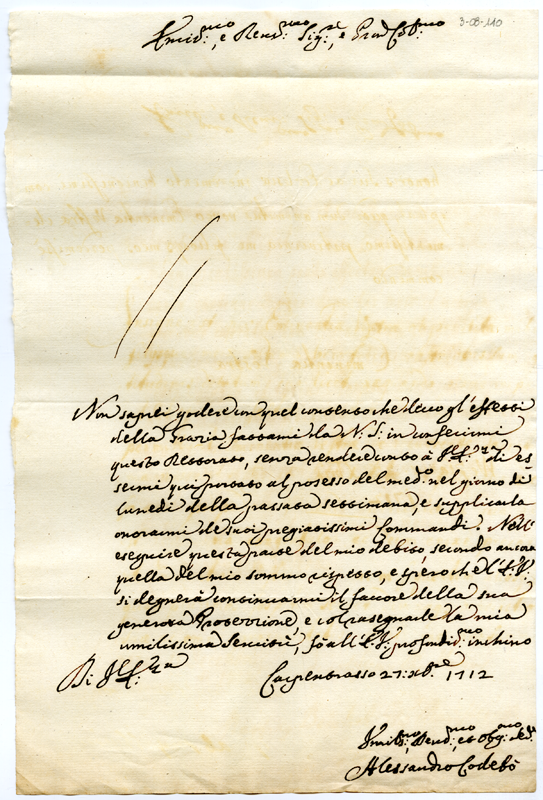 3-08-110
Em.mo e Rend.mo Sig.re, e Pron Col.mo
Non saprei godere con quel contento che deco gl'effetti
della Grazia fattami da N: S: in conferirmi
questo Rettorato, senza rendere conto à di es
sermi qui portato al possesso del med.o nel giorno di
Lunedi della passata settimana, e supplicarla
onorarmi de suoi pregiatissimi Commandi. Nell'
eseguire questa parte del mio debito, secondo ancora
quella del mio sommo rispetto, e spero che l'E.V.
si degnerà continuarmi il favore della sua
generosa Protezzione, e col rasegnarle la mia
umilissima Servitù, fò all'E.V. profondis.mo inchino
Di Carpentrasso 27: 1712
Umilis.mo, Devd.mo, et Obg.mo
Alessandro Codebò